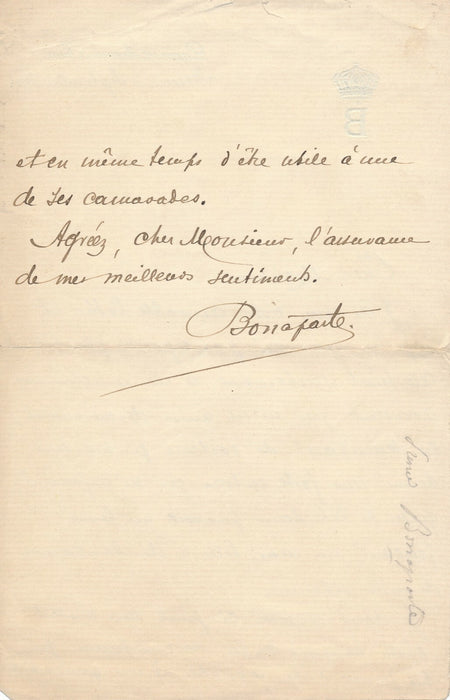 et en même temps d'être utile à une
de ses camarades.
Agréez, cher Monsieur, l'assurance
de mes meilleurs sentiments.
Bonaparte.
B
Bonaparte